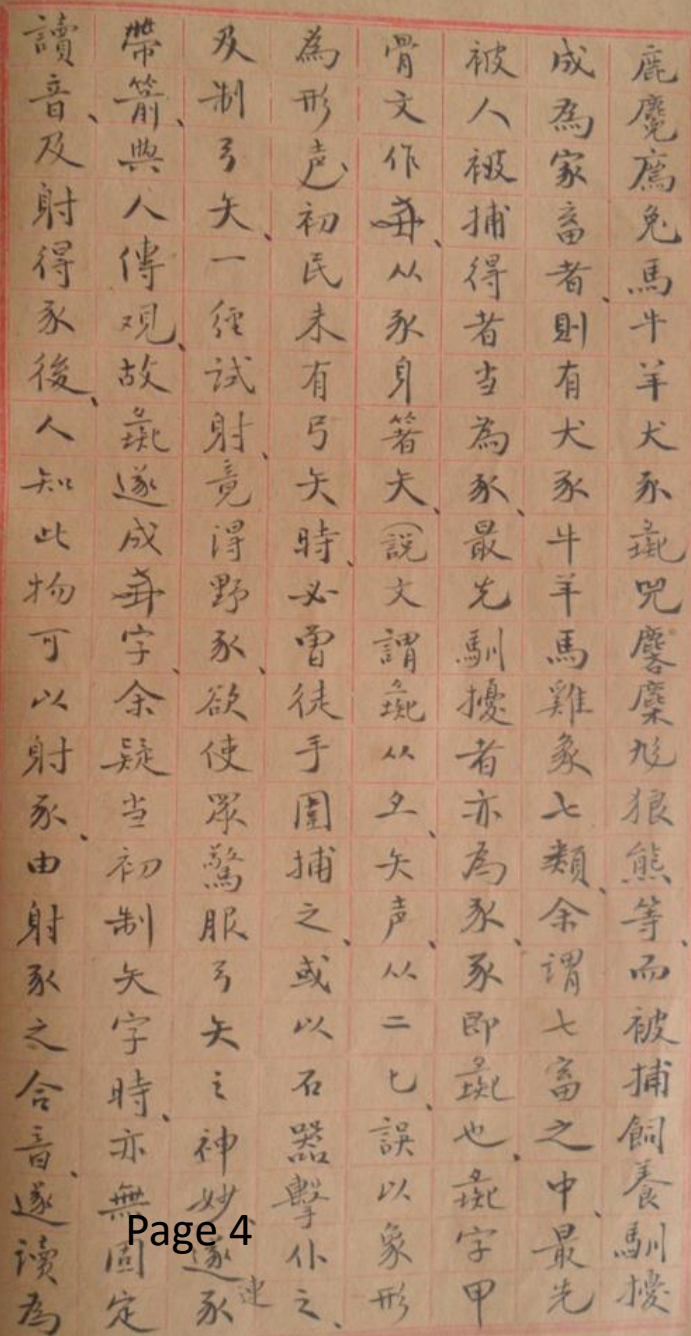 鹿麑廌兔馬牛羊犬豕彘兕麐麋彪狼熊等、而被捕飼養馴擾
成為家畜者、則有犬豕牛羊馬雞象七類、余謂七畜之中、最先
被人被捕得者当為豕、最先馴擾者亦為豕、豕即彘也、彘字甲
骨文作、从豕身箸矢、（説文謂彘从彑、矢声、从二匕、誤以象形
為形声、初民未有弓矢時、必曾徒手圍捕之、或以石器擊仆之、
及制弓矢、一經試射、竟得野豕、欲使眾驚服弓矢之神妙、遂豕連
帶箭、與人傳观、故彘遂成字、余疑当初制矢字時、亦無固定
讀音、及射得豕後、人知此物可以射豕、由射豕之合音、遂讀為
Page 4